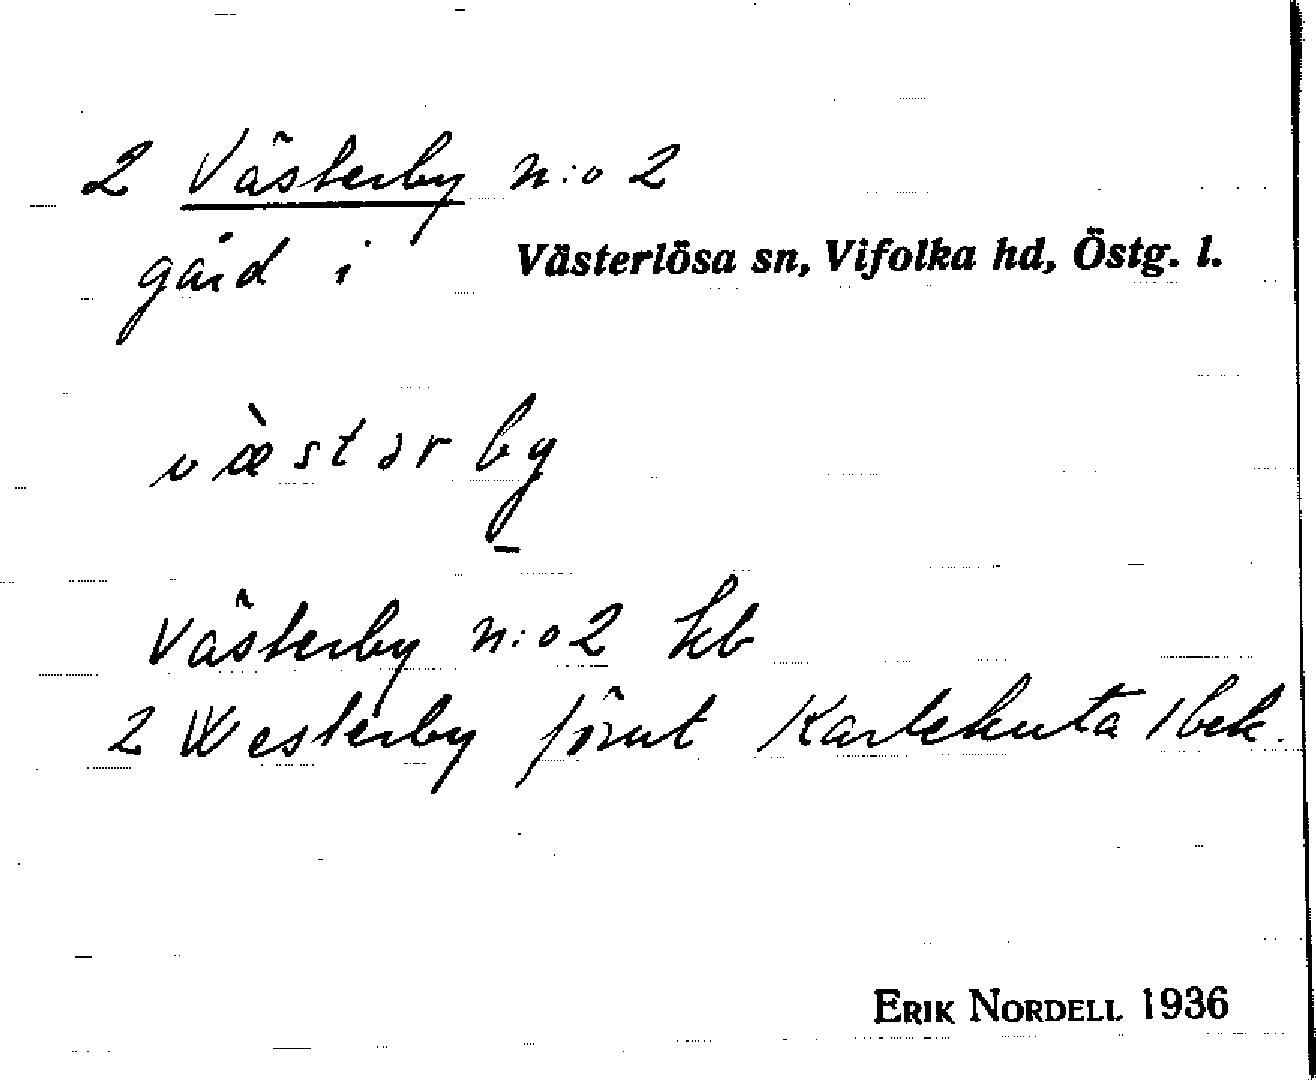 2 Västerby n:o 2
gård i Västerlösa sn, Vifolka hd, Östg. l.
væ̀stərby̠
Västerby n:o 2 kb
2 Westerby förut Karlekuta Jbek.
ERIK NORDELL 1936